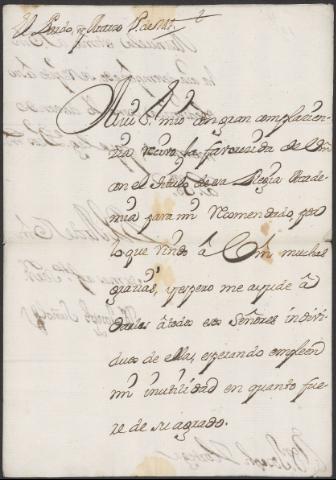 El Pardo, y Marzo
Mui S.r mio con gran complacen-
cia recivo la favorecida de Vm
con el titulo de esa Regia Acade-
mia para mi Recomendado, por
lo que rindo â Vm muchas
gracias, y espero me ayude â
darlas â todos esos Señores indivi-
duos de ella, esperando empleen
mi inutilidad en quanto fue-
re de su agrado.